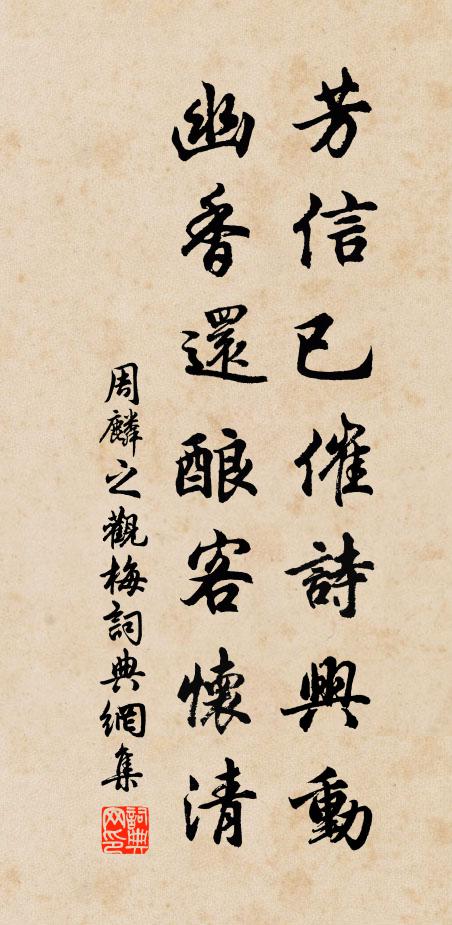 芳信已催詩興動
幽香還酿客懷清
周麟之觀梅詞典網集
詞典网印